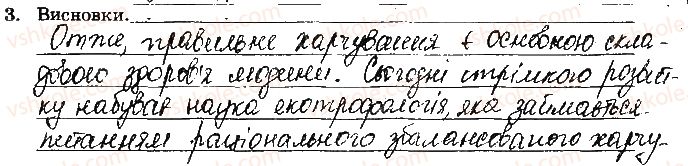 3. Висновки.
Отже, правильне харчування є основною скла-
довою здоров'я людини. Сьогодні стрімкого розвит-
ку набуває наука екотрофологія, яка займається
питанням раціонального збалансованого харчу-